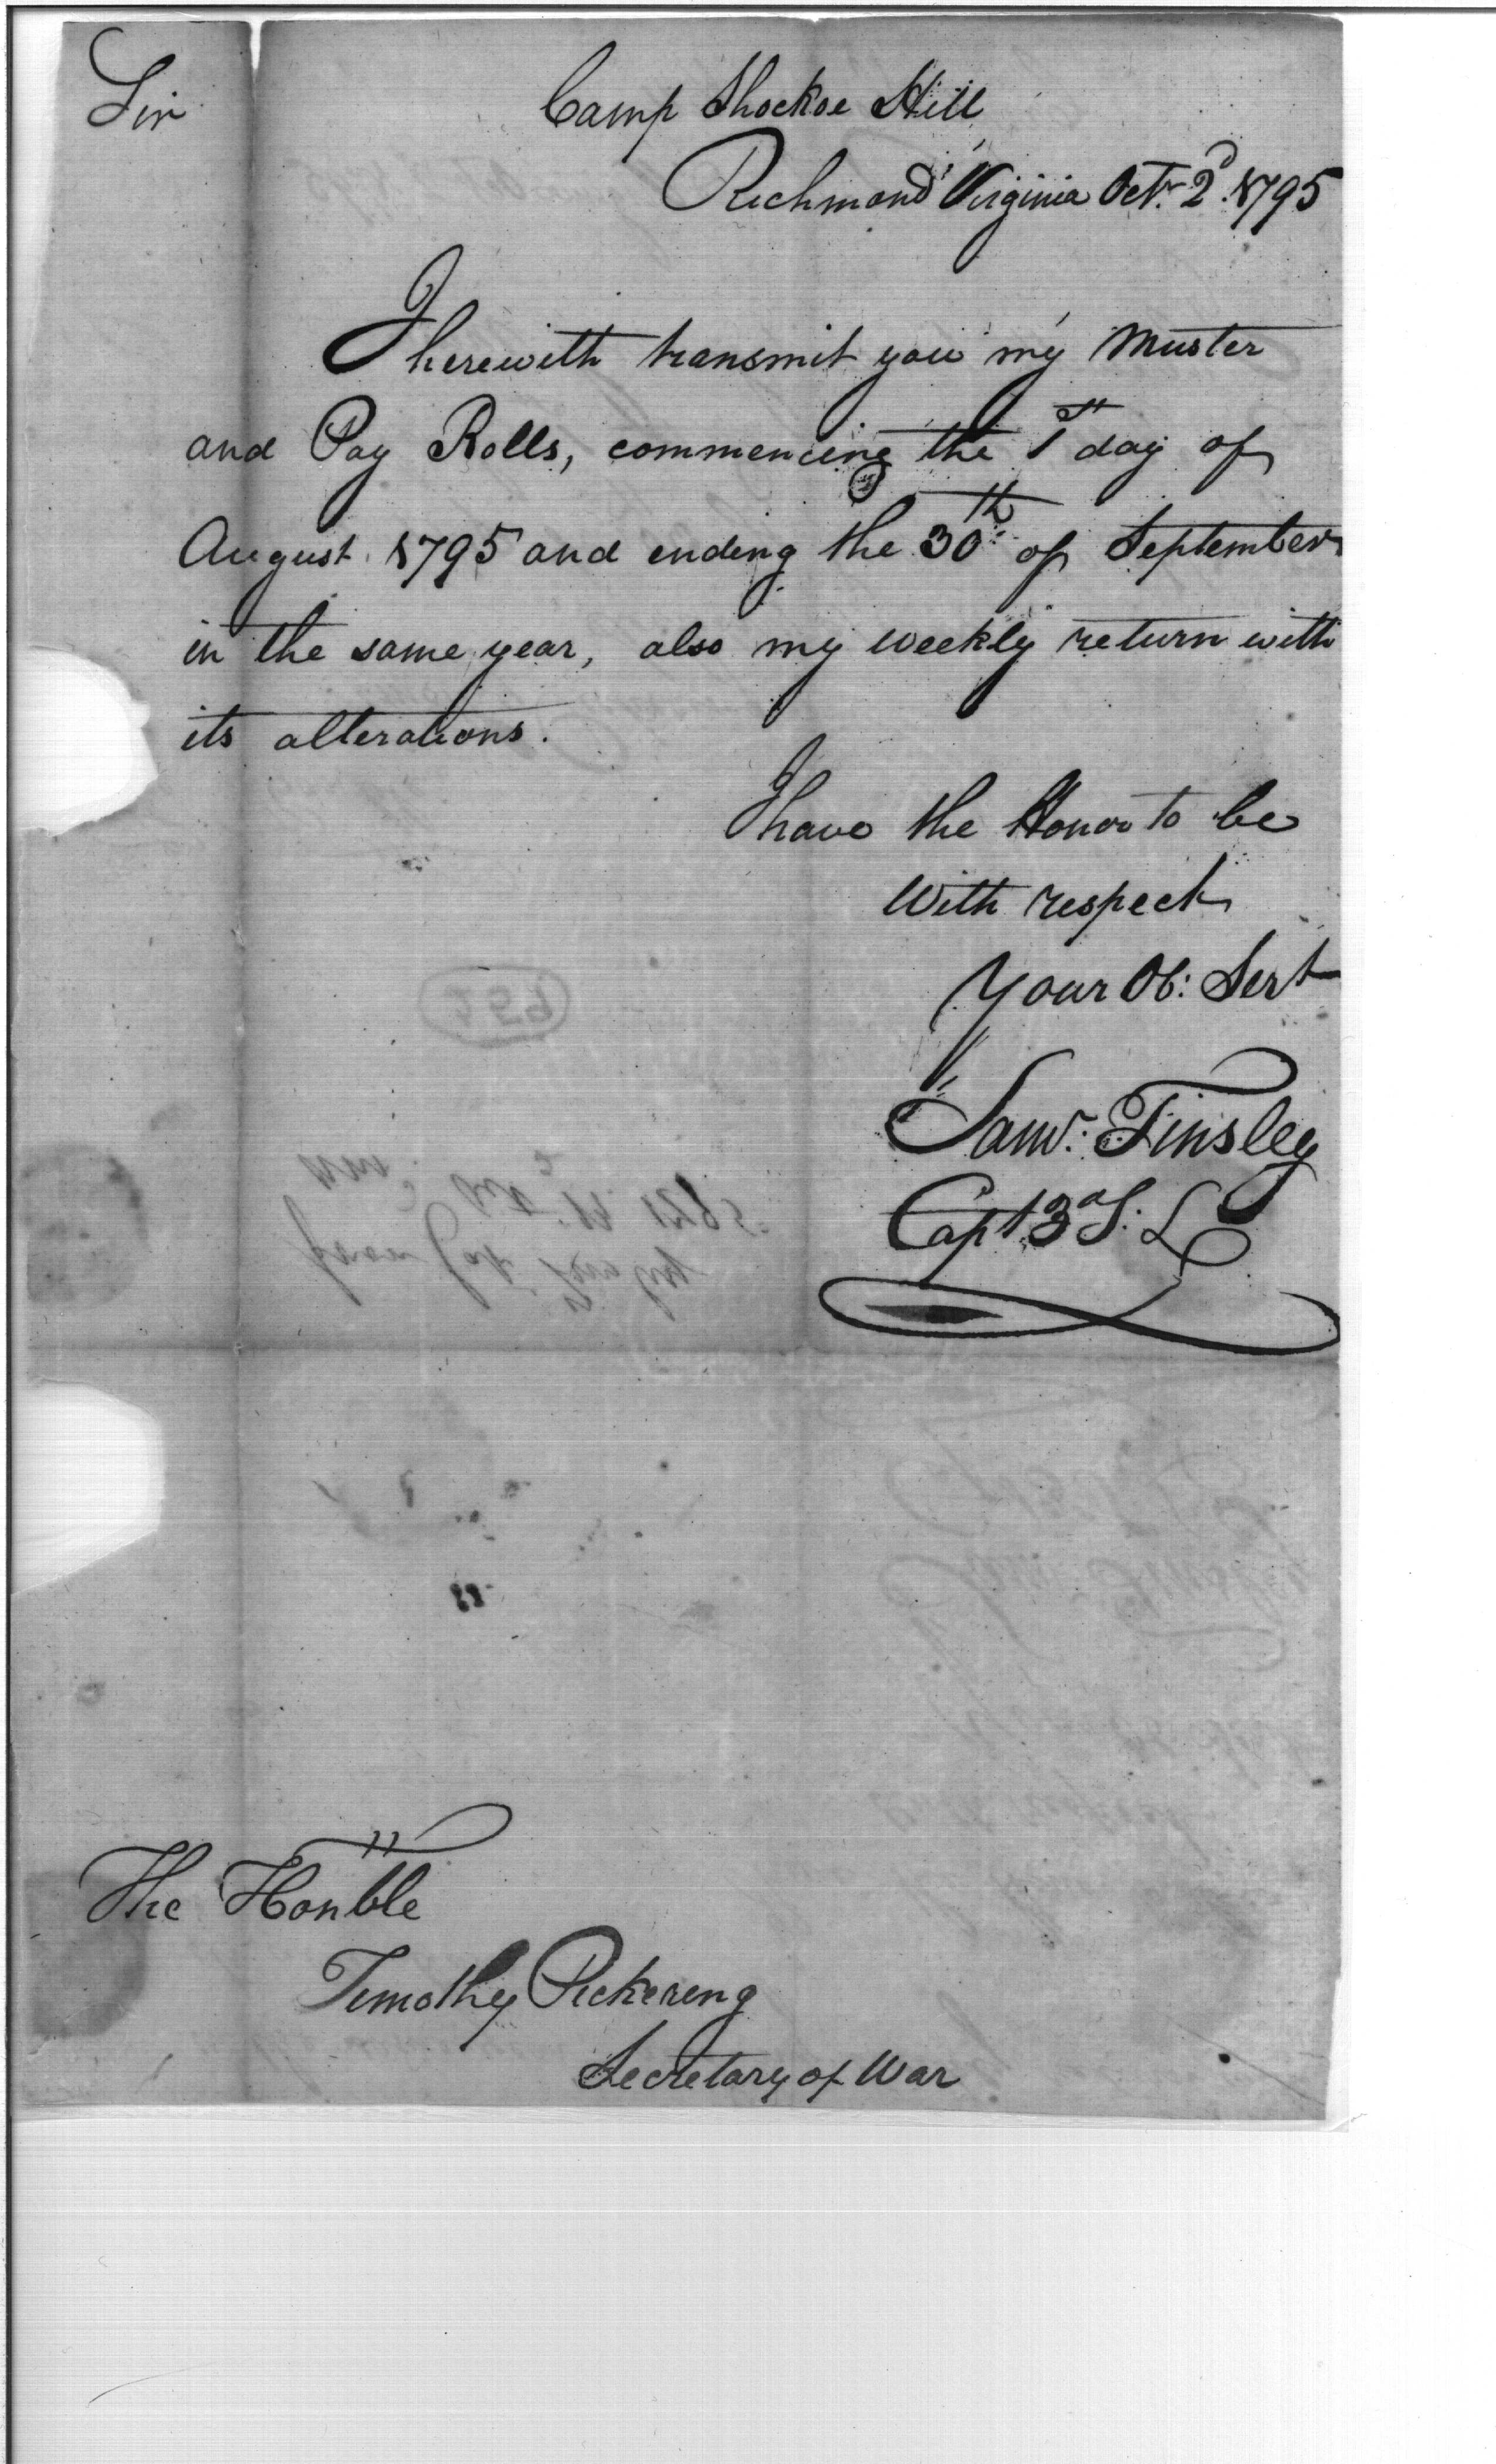 Sir
Camp Shockoe Hill
Richmond Virginia Octr. 2d. 1795
I herewith transmit you my Muster
and Pay Rolls, commencing the 1st day of
August 1795 and ending the 30th of September
in the same year, also my weekly return with
its alterations.
I have the Honor to be
With respect
Your Ob: Sert
Saml. Tinsley
Capt 3d S: L
The Honble
Timothy Pickering
Secretary of War